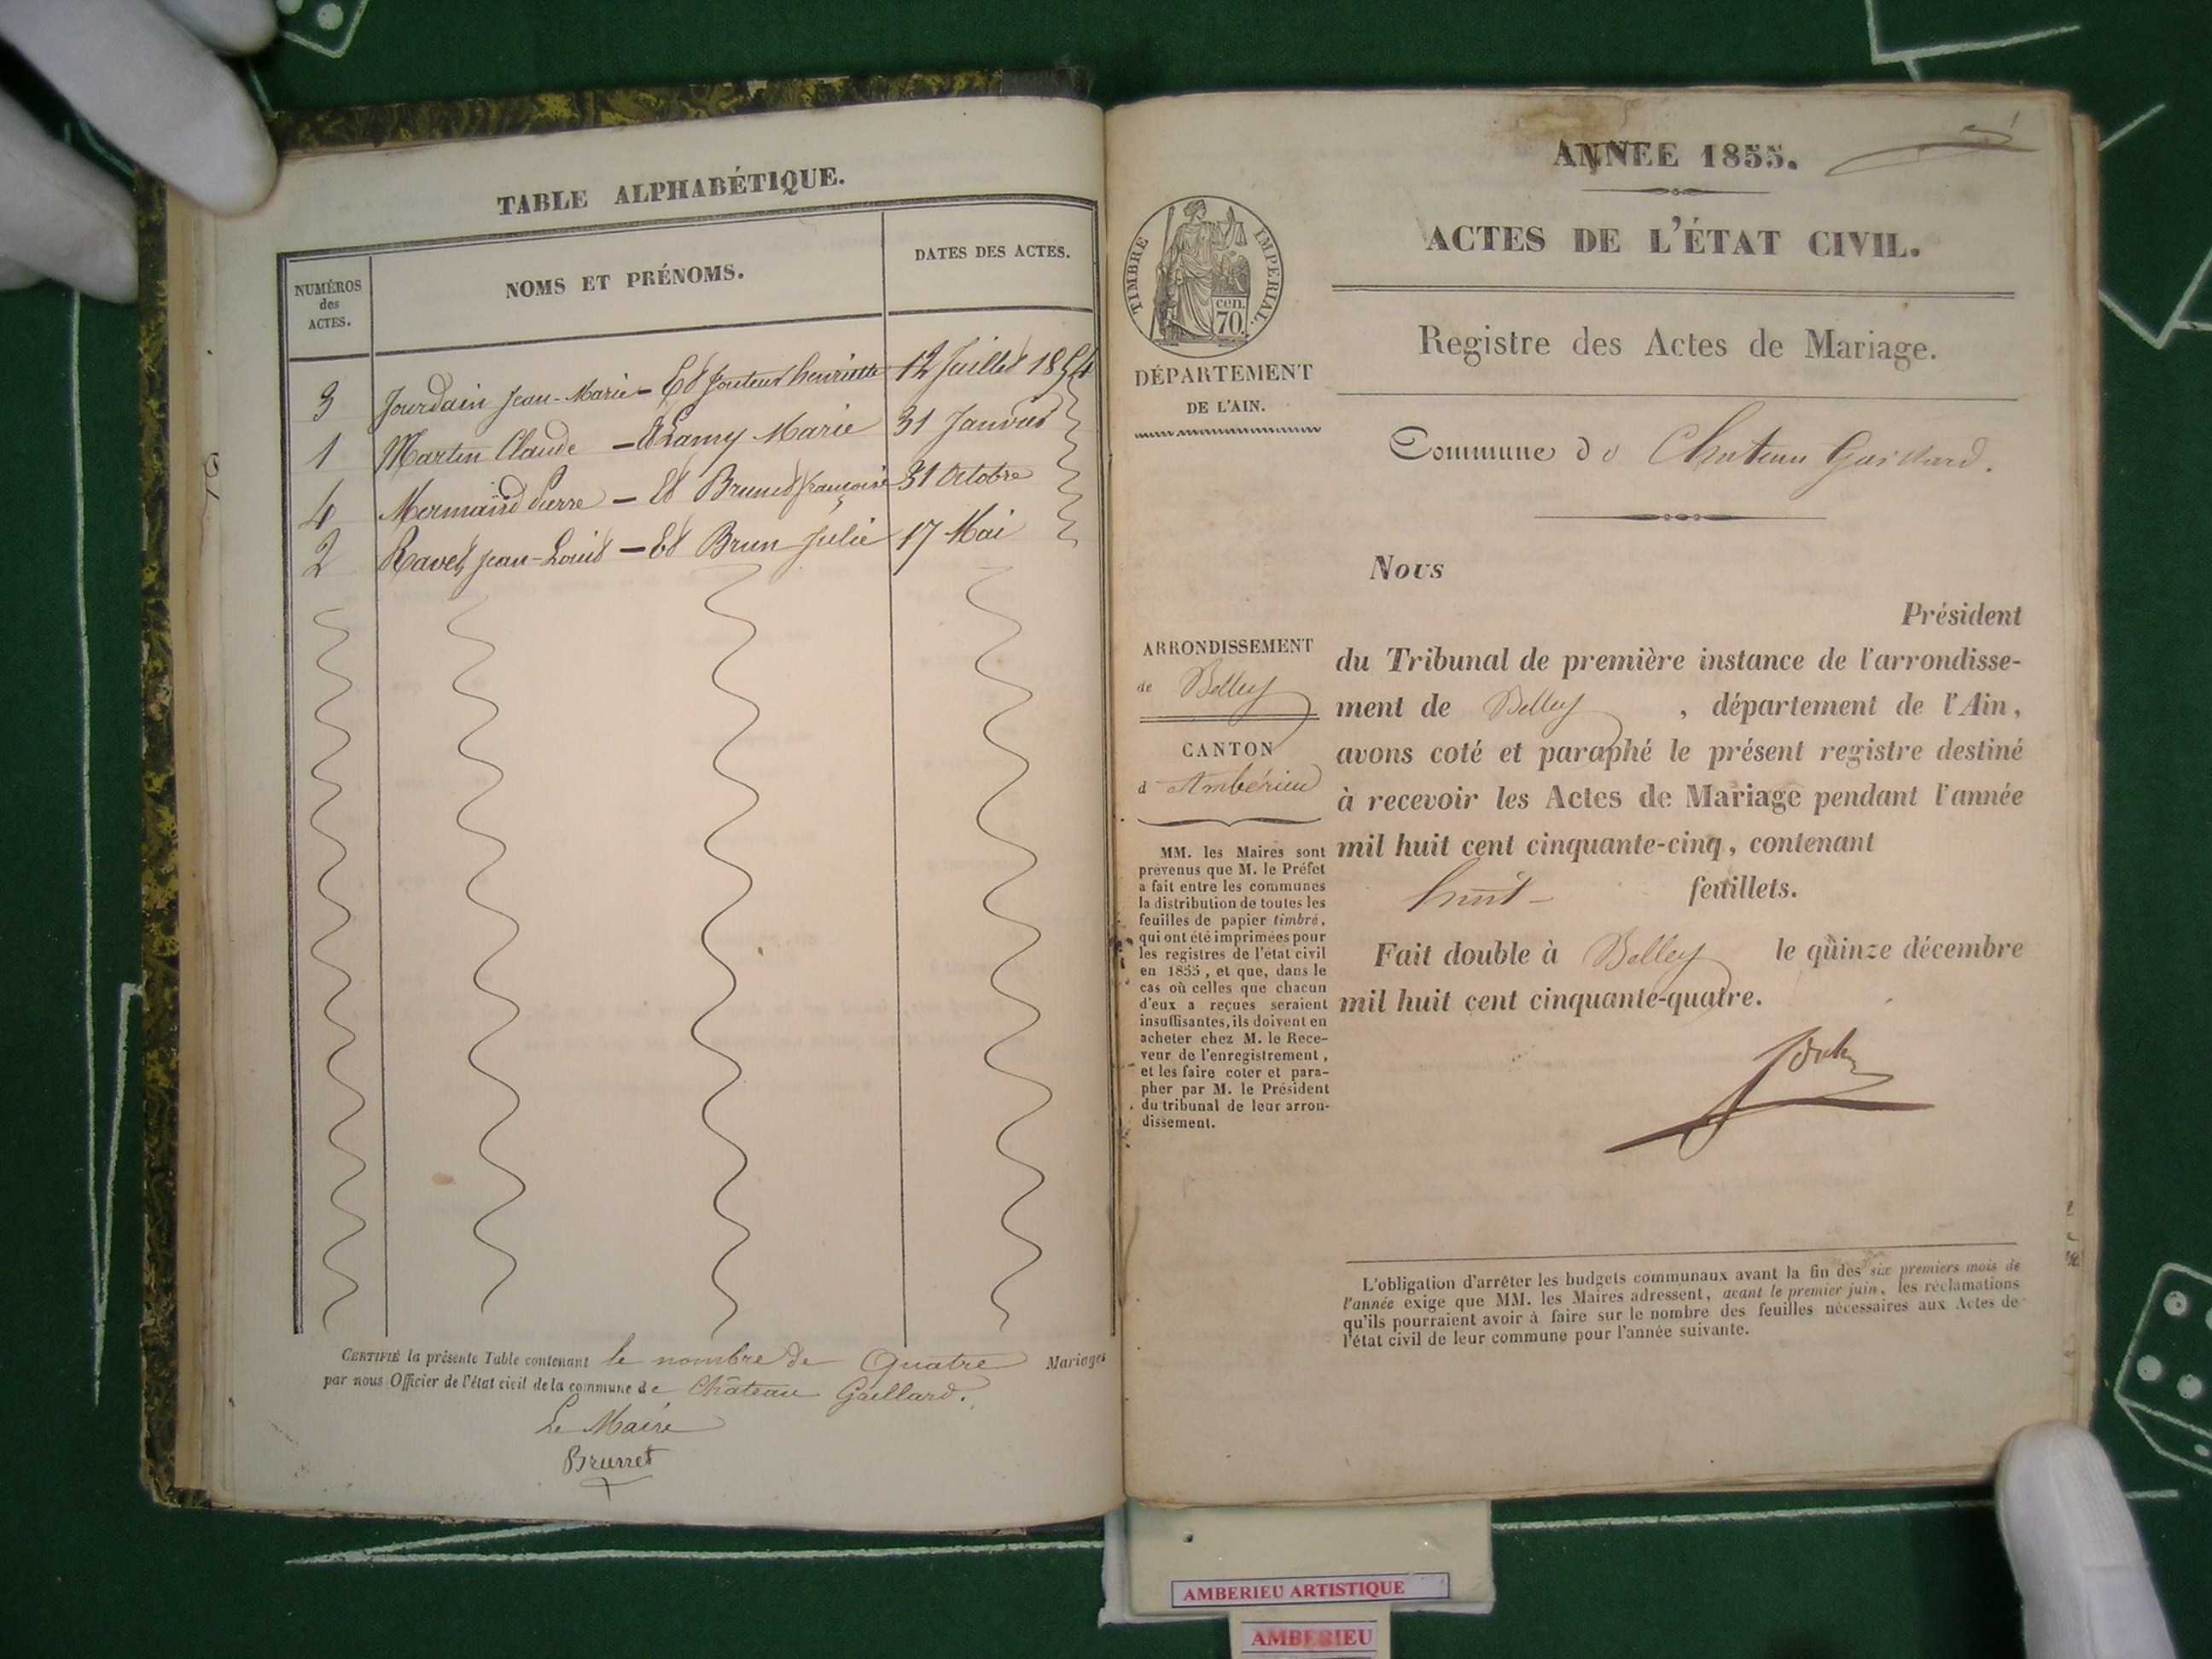 TABLE ALPHABÉTIQUE.
NUMÉROS
des
ACTES.
NOMS ET PRÉNOMS.
DATES DES ACTES.
3 Jourdain Jean-Marie - Et henriette 12 Juillet 1854
1 Martin Claude - Et Lamy Marie 31 Janvier
4 Mermand Pierre - Et Brunet françoise 31 Octobre
2 Ravet Jean-Louis - Et Brun Julie 17 Mai
CERTIFIÉ la présente Table contenant le nombre de Quatre Mariages
par nous Officier de l'état civil de la commune de Château Gaillard.
Le Maire
Brunet
ANNEE 1855.
ACTES DE L'ÉTAT CIVIL.
Registre des Actes de Mariage.
TIMBRE IMPERIAL.
cen.
70.
DÉPARTEMENT
DE L'AIN.
Commune de Chateau Gaillard.
Nous
Président
du Tribunal de première instance de l'arrondisse-
ment de Belley, département de l'Ain,
avons coté et paraphé le présent registre destiné
à recevoir les Actes de Mariage pendant l'année
mil huit cent cinquante-cinq, contenant
huit feuillets.
Fait double à Belley le quinze décembre
mil huit cent cinquante-quatre.
ARRONDISSEMENT
de Belley
CANTON
d'Ambérieu
MM. les Maires sont
prévenus que M. le Préfet
a fait entre les communes
la distribution de toutes les
feuilles de papier timbré,
qui ont été imprimées pour
les registres de l'état civil
en 1855, et que, dans le
cas où celles que chacun
d'eux a reçues seraient
insuffisantes, ils doivent en
acheter chez M. le Rece-
veur de l'enregistrement,
et les faire coter et para-
pher par M. le Président
du tribunal de leur arron-
dissement.
L'obligation d'arrêter les budgets communaux avant la fin des six premiers mois de
l'année exige que MM. les Maires adressent, avant le premier juin, les réclamations
qu'ils pourraient avoir à faire sur le nombre des feuilles nécessaires aux Actes de
l'état civil de leur commune pour l'année suivante.
AMBERIEU ARTISTIQUE
AMBERIEU